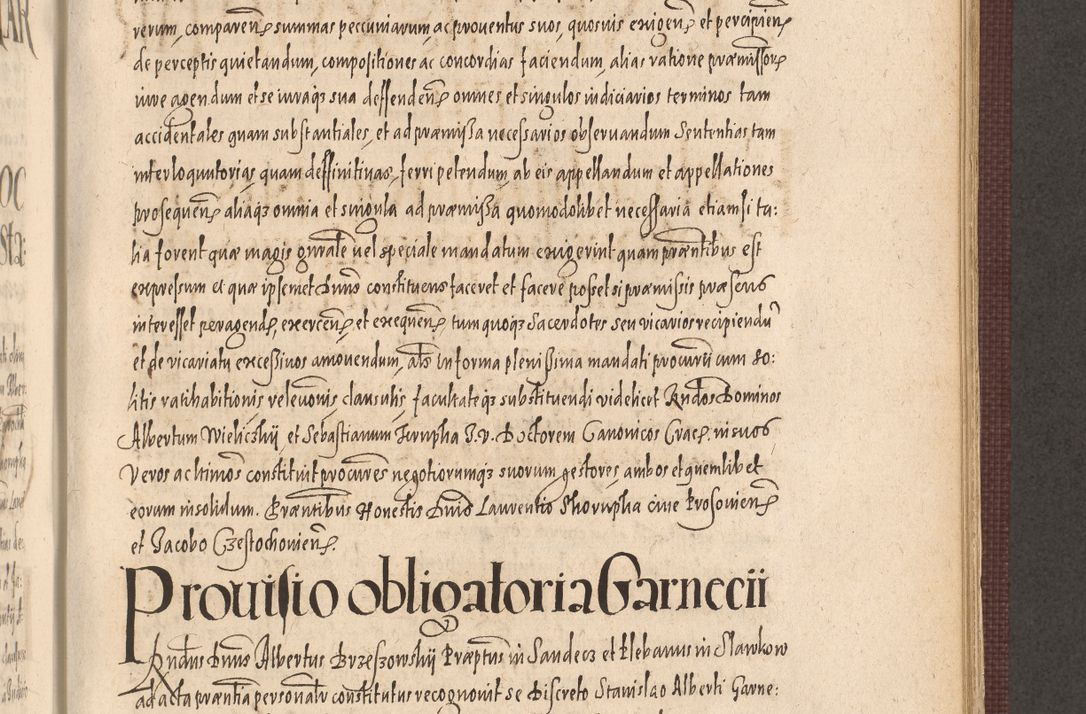 verum, comparen. summas peccuniarum, ac proventus suos, quosuis exigen. et percipien.
de perceptis quietandum, compositiones ac concordias faciendum, alias ratione præmissor.
iure agendum et se iuraqȝ sua deffenden. omnes et singulos iudiciarios terminos tam
accidentales quam substantiales, et ad præmissa necessarios observandum Sententias tam
interloquutorias, quam deffinitivas, ferri petendum, ab eis appellandum et appellationes
prosequen. aliaqȝ omnia et singula ad præmissa quomodolibet necessaria etiamsi ta:
lia forent quæ magis gnrale vel speciale mandatum exigerint quam præntibus est
expressum et quæ ipsemet Dnns constituens faceret et facere posset si præmissis præsens
interesset peragend. exercen. et exequen. tum quoqȝ Sacerdotes seu vicarios recipiendū
et de vicariatu excessivos amovendum, als in forma plenissima mandati procurii cum so:
litis ratihabitionis relevonis clausulis facultateqȝ substituendi videlicet Rndos Dominos
Albertum Wieliczkij, et Sebastianum Jerupha J. v. Doctorem Canonicos Crac. in suos
veros ac ltimos constituit procures negotiorumqȝ suorum gestores, ambos et quemlibet
eorum in solidum. Præntibus Honestis Dnis Laurentio Skorupha cive Krosovien.
et Jacobo Częstochovien.
Provisio obligatoria Garnecii
Rndus Dnns Albertus Brzeszowskij Præptus in Sandecz et Plebanus in Slawkow
ad acta præntia personalr constitutus recognovit se Discreto Stanislao Alberti Garne: